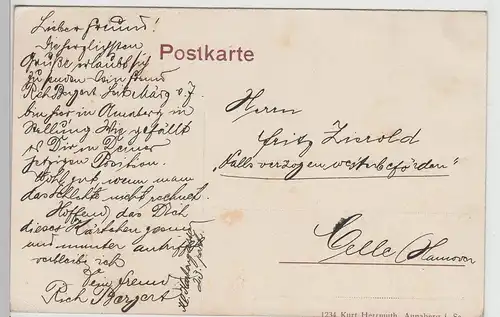 Lieber Freund!
Die herzlichsten
Grüße erlaubt sich
zu senden Dein Freund
Rich Bergert Seit März v. J.
bin hier in in
Stellung. Wie gefällt
es Dir in Deiner
jetzigen Position.
Wohl gut, wenn man
das schlechte nicht rechnet.
Hoffend, das Dich
dieses Kärtchen gesund
und munter antrifft
verbleibe ich
Dein Freund
Rich Bergert
Postkarte
Herrn
Fritz Zierold
"Falls verzogen weiterbefördern"
Celle (Hannover
1234 Kurt Herrmuth, Annaberg i. Sa.